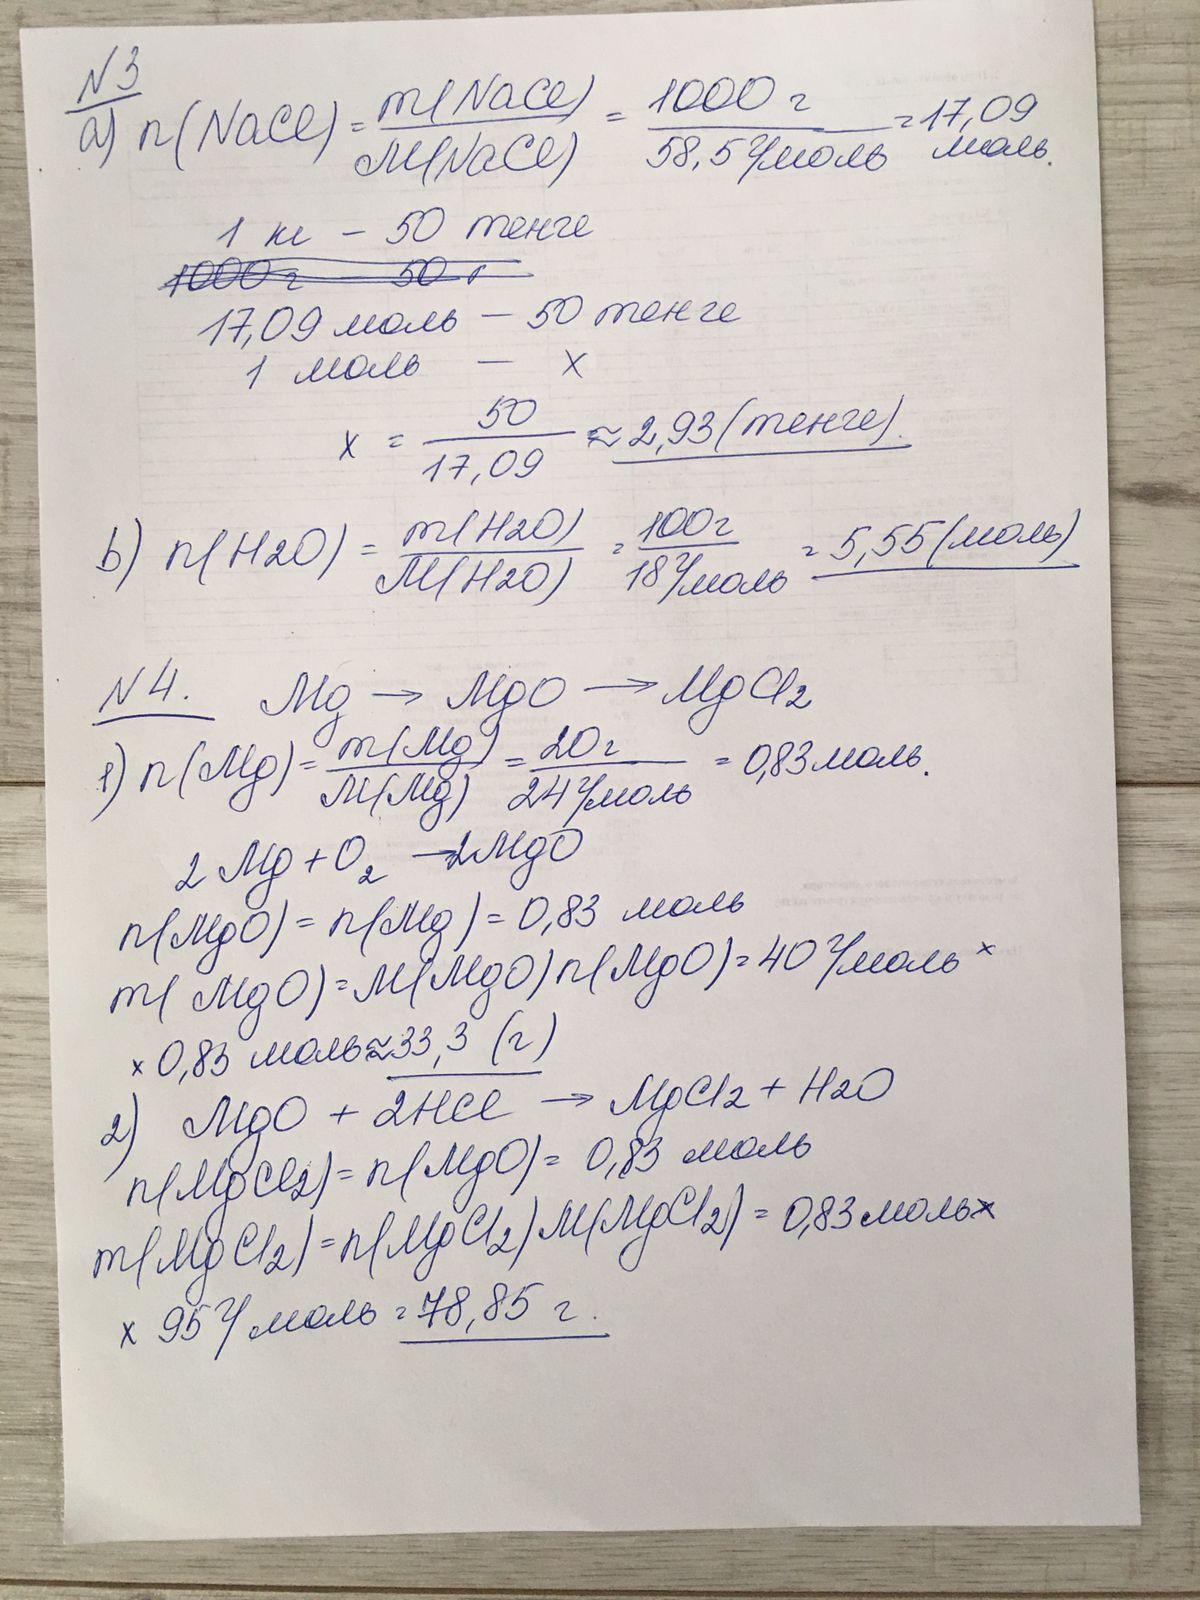 N3
a) n(NaCl) = m(NaCl) / M(NaCl) = 1000 г / 58,5 г/моль = 17,09 моль.
1 кг – 50 тенге
17,09 моль – 50 тенге
1 моль – x
x = 50 / 17,09 ≈ 2,93 (тенге).
b) n(H2O) = m(H2O) / M(H2O) = 100 г / 18 г/моль = 5,55 (моль)
N4. Mg → MgO → MgCl2
1) n(Mg) = m(Mg) / M(Mg) = 20 г / 24 г/моль = 0,83 моль.
2 Mg + O2 → 2MgO
n(MgO) = n(Mg) = 0,83 моль
m(MgO) = M(MgO) n(MgO) = 40 г/моль ×
× 0,83 моль ≈ 33,3 (г)
2) MgO + 2HCl → MgCl2 + H2O
n(MgCl2) = n(MgO) = 0,83 моль
m(MgCl2) = n(MgCl2) M(MgCl2) = 0,83 моль ×
× 95 г/моль = 78,85 г.